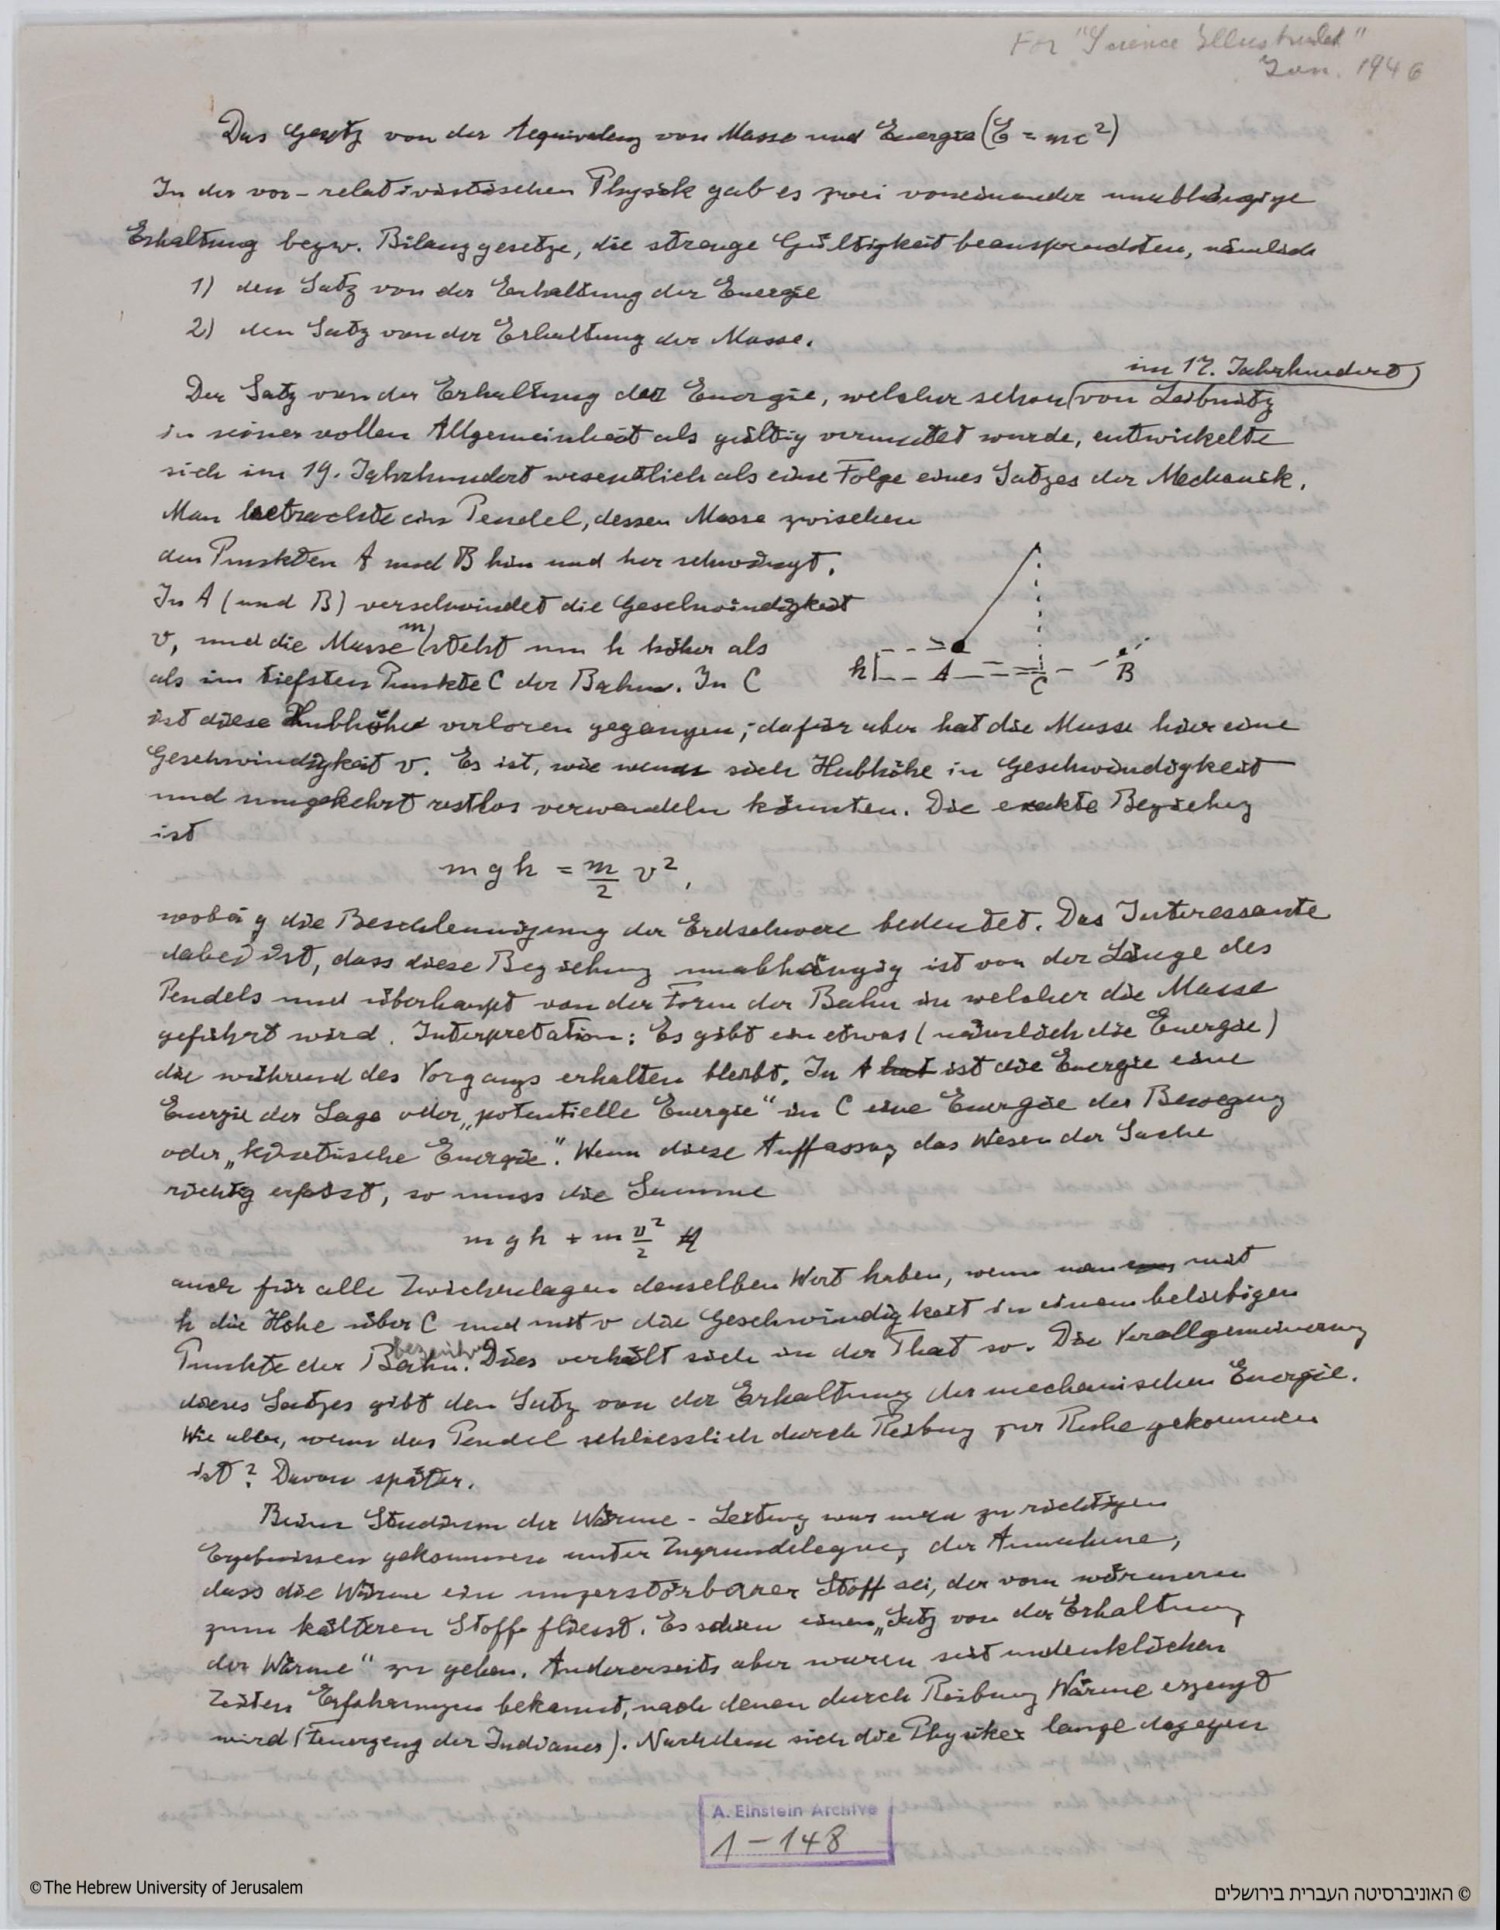 For "Science Illustrated"
Jan. 1946
Das Gesetz von der Aequivalenz von Masse und Energie (E = mc²)
In der vor-relativistischen Physik gab es zwei voneinander unabhängige
Erhaltung bezw. Bilanzgesetze, die strenge Gültigkeit beanspruchten, nämlich
1) den Satz von der Erhaltung der Energie
2) den Satz von der Erhaltung der Masse.
im 17. Jahrhundert
Der Satz von der Erhaltung der Energie, welcher schon von Leibnitz
in seiner vollen Allgemeinheit als gültig vermutet wurde, entwickelte
sich im 19. Jahrhundert wesentlich als eine Folge eines Satzes der Mechanik.
Man betrachte ein Pendel, dessen Masse zwischen
den Punkten A und B hin und her schwingt.
In A (und B) verschwindet die Geschwindigkeit
v, und die Masse m steht um h höher als
als im tiefsten Punkte C der Bahn. In C
h A C B
ist diese Hubhöhe verloren gegangen; dafür aber hat die Masse hier eine
Geschwindigkeit v. Es ist, wie wenn sich Hubhöhe in Geschwindigkeit
und umgekehrt restlos verwandeln könnten. Die exakte Beziehung
ist
mgh = m/2 v²,
wobei g die Beschleunigung der Erdschwere bedeutet. Das Interessante
dabei ist, dass diese Beziehung unabhängig ist von der Länge des
Pendels und überhaupt von der Form der Bahn in welcher die Masse
geführt wird. Interpretation: Es gibt ein etwas (nämlich die Energie)
die während des Vorgangs erhalten bleibt. In A hat ist die Energie eine
Energie der Lage oder „potentielle Energie" in C eine Energie der Bewegung
oder „kinetische Energie". Wenn diese Auffassung das Wesen der Sache
richtig erfasst, so muss die Summe
mgh + m v²/2
auch für alle Zwischenlagen denselben Wert haben, wenn man mit
h die Höhe über C und mit v die Geschwindigkeit in einem beliebigen
Punkte der Bahn bezeichnet. Dies verhält sich in der That so. Die Verallgemeinerung
dieses Satzes gibt den Satz von der Erhaltung der mechanischen Energie.
Wie aber, wenn das Pendel schliesslich durch Reibung zur Ruhe gekommen
ist? Davon später.
Beim Studium der Wärme-Leitung war man zu richtigen
Ergebnissen gekommen unter Zugrundelegung der Annahme,
dass die Wärme ein unzerstörbarer Stoff sei, der vom wärmeren
zum kälteren Stoffe fliesst. Es schien einen „Satz von der Erhaltung
der Wärme" zu geben. Andererseits aber waren seit undenklichen
Zeiten Erfahrungen bekannt, nach denen durch Reibung Wärme erzeugt
wird (Feuerzeug der Indianer). Nachdem sich die Physiker lange dagegen
A. Einstein Archive
1-148
© The Hebrew University of Jerusalem
האוניברסיטה העברית בירושלים ©